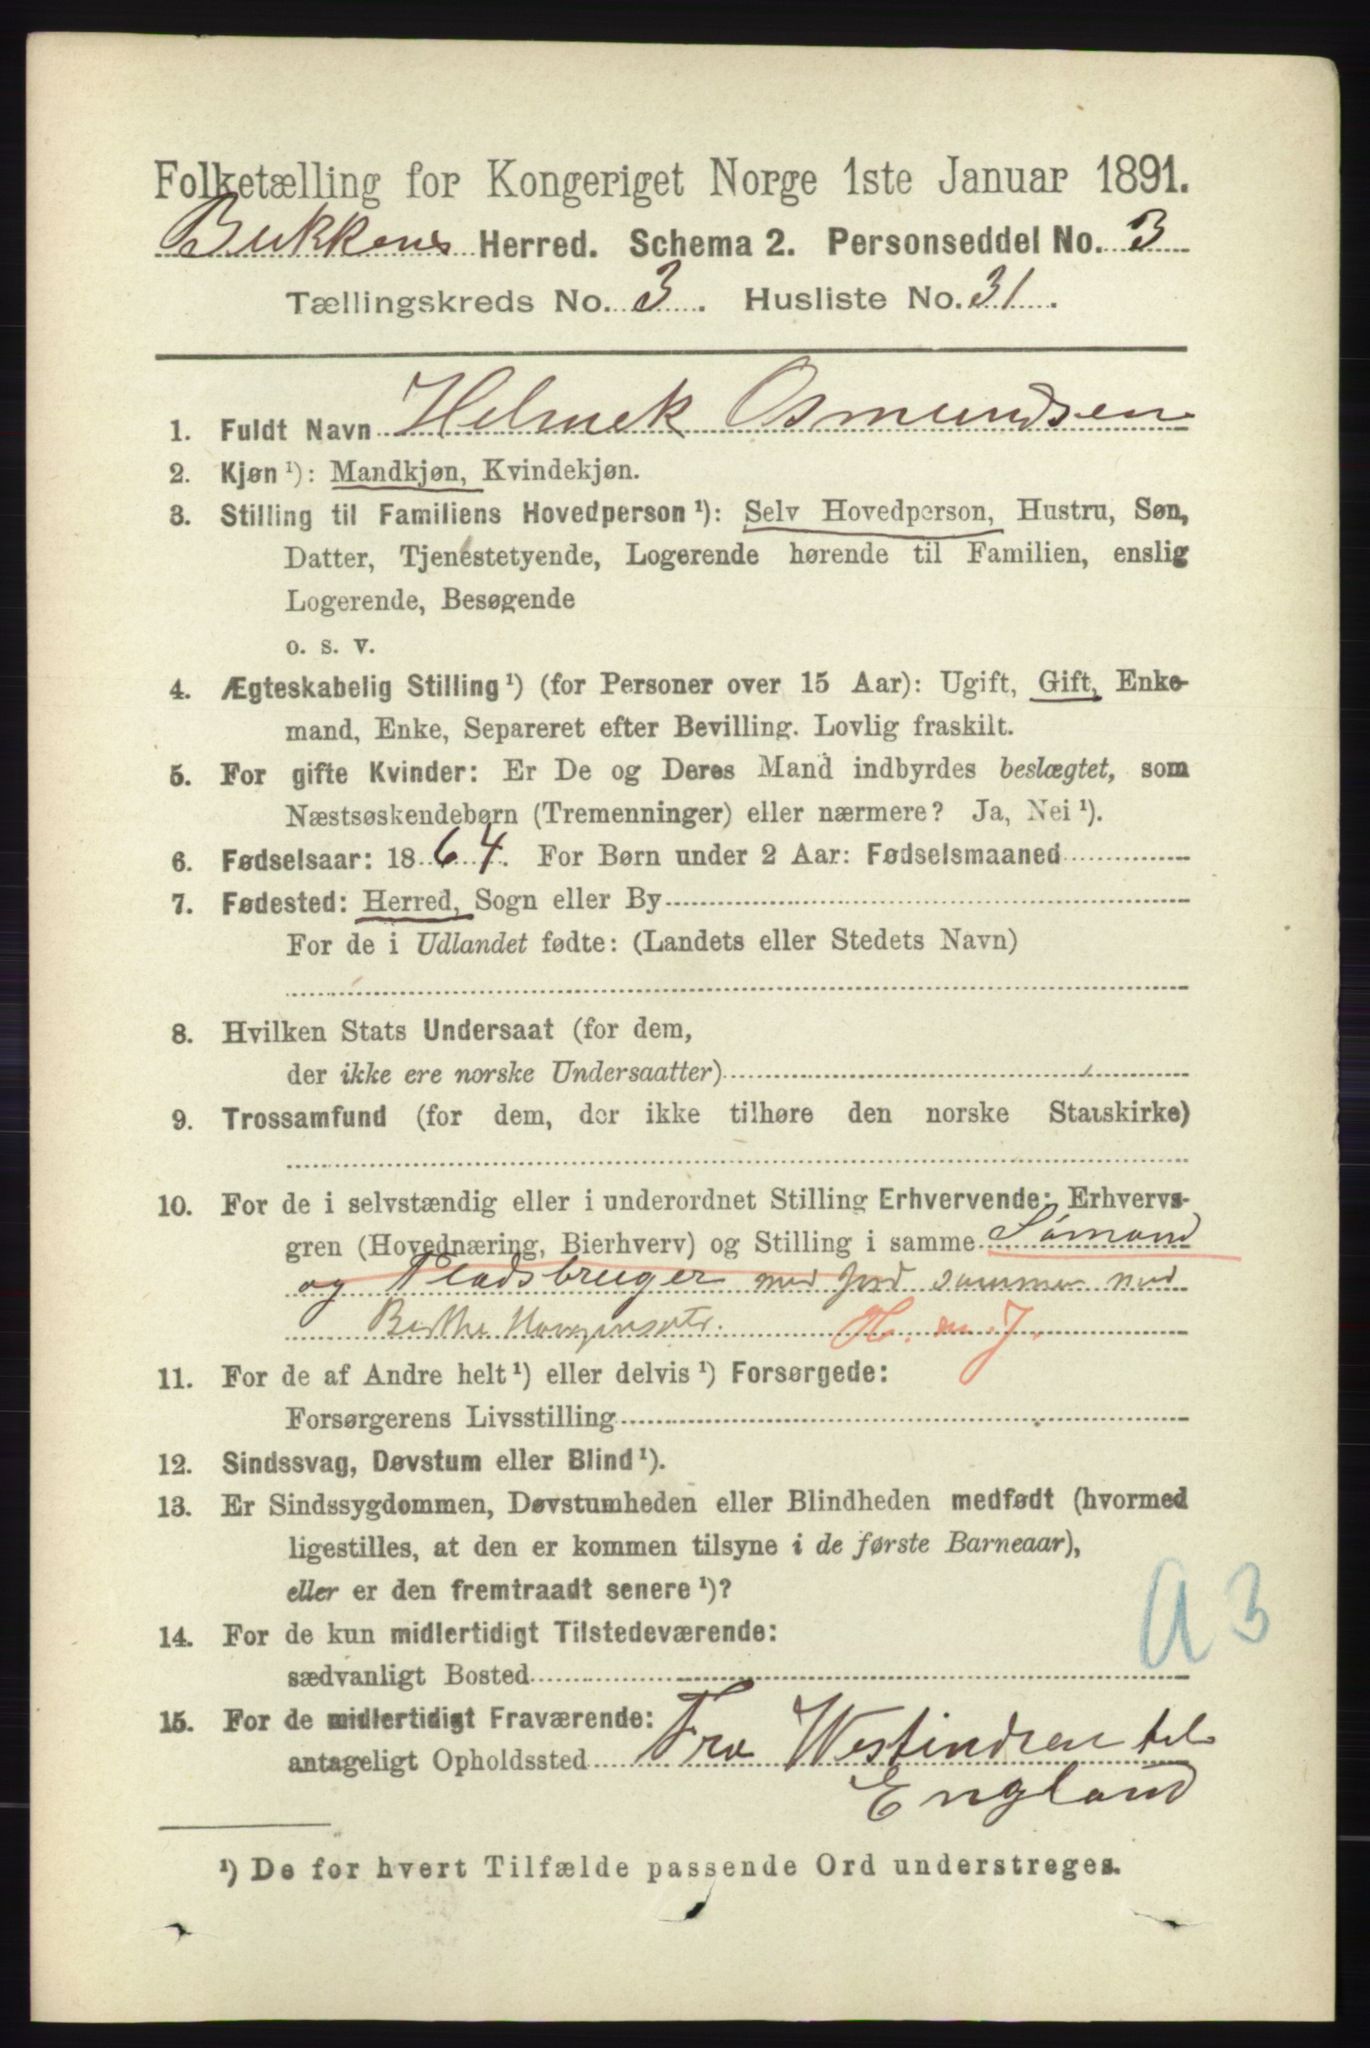 Folketælling for Kongeriget Norge 1ste Januar 1891.
Bukkens Herred. Schema 2. Personseddel No. 3
Tællingskreds No. 3. Husliste No. 31.
1. Fuldt Navn Helmek Osmundsen
2. Kjøn ¹): Mandkjøn, Kvindekjøn.
3. Stilling til Familiens Hovedperson ¹): Selv Hovedperson, Hustru, Søn,
Datter, Tjenestetyende, Logerende hørende til Familien, enslig
Logerende, Besøgende
o. s. v.
4. Ægteskabelig Stilling ¹) (for Personer over 15 Aar): Ugift, Gift, Enke-
mand, Enke, Separeret efter Bevilling. Lovlig fraskilt.
5. For gifte Kvinder: Er De og Deres Mand indbyrdes beslægtet, som
Næstsøskendebørn (Tremenninger) eller nærmere? Ja, Nei ¹).
6. Fødselsaar: 1864. For Børn under 2 Aar: Fødselsmaaned
7. Fødested: Herred, Sogn eller By
For de i Udlandet fødte: (Landets eller Stedets Navn)
8. Hvilken Stats Undersaat (for dem,
der ikke ere norske Undersaatter)
9. Trossamfund (for dem, der ikke tilhøre den norske Statskirke)
10. For de i selvstændig eller i underordnet Stilling Erhvervende: Erhvervs-
gren (Hovednæring, Bierhverv) og Stilling i samme Sømand
og Pladsbruger med jord sammen med
Berthe H. m. J.
11. For de af Andre helt ¹) eller delvis ¹) Forsørgede:
Forsørgerens Livsstilling
12. Sindssvag, Døvstum eller Blind ¹).
13. Er Sindssygdommen, Døvstumheden eller Blindheden medfødt (hvormed
ligestilles, at den er kommen tilsyne i de første Barneaar),
eller er den fremtraadt senere ¹)?
A 3
14. For de kun midlertidigt Tilstedeværende:
sædvanligt Bosted
15. For de midlertidigt Fraværende:
antageligt Opholdssted Fra Westindien til
England
¹) De for hvert Tilfælde passende Ord understreges.